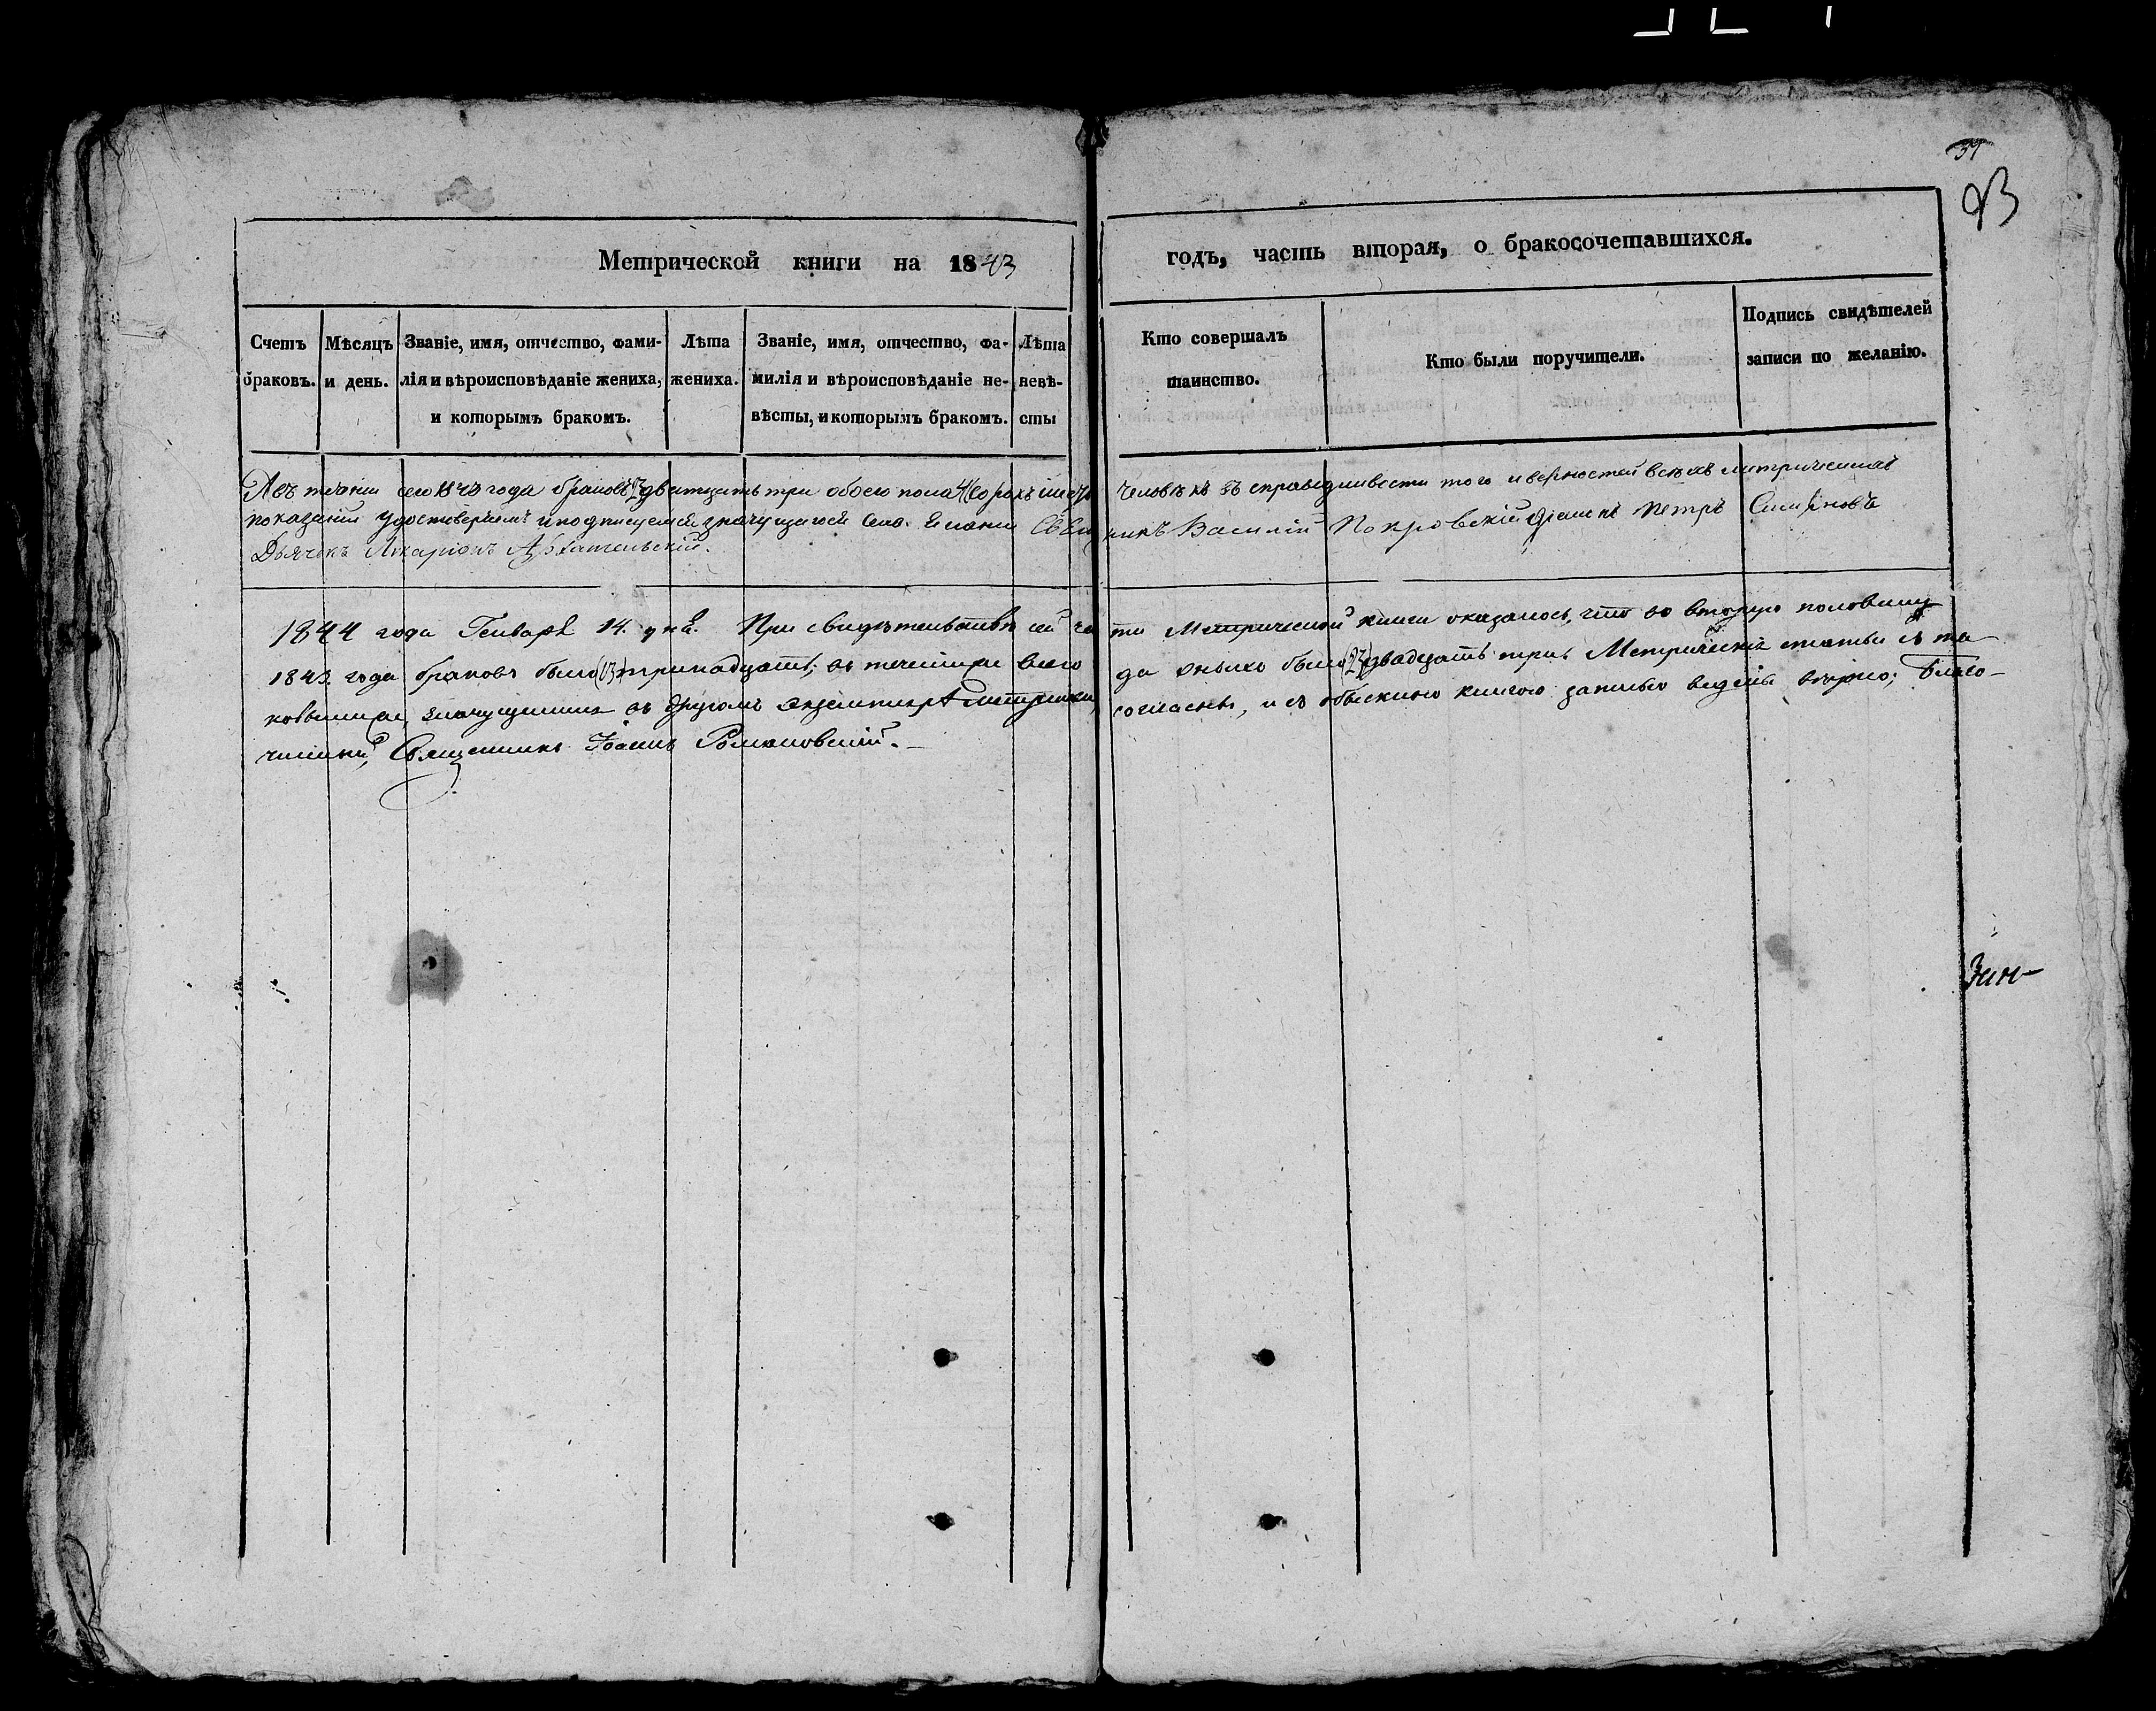 39
93
Метрической книги на 1843 годъ, часть вторая, о бракосочетавшихся.
Счетъ браковъ.
Мѣсяцъ и день.
Званіе, имя, отчество, фами-
лія и вѣроисповѣданіе жениха,
и которымъ бракомъ.
Лѣта
жениха.
Званіе, имя, отчество, фа-
милія и вѣроисповѣданіе не-
вѣсты, и которымъ бракомъ.
Лѣта
невѣ-
сты
Кто совершалъ
таинство.
Кто были поручители.
Подпись свидѣтелей
записи по желанію.
Авъ течении сего 1843 года браковъ 23 дватцать три обоего пола 46 сорокъ шесть человѣкъ въ справедливости того и верностей всѣхъ метрическихъ
показаний удостоверяемъ и подписуемся значущагося села Свящ никъ Василий Покровский диаконъ Петръ Смирновъ
Дьячекъ Иларионъ Архангельский.
1844 года Генваря 14. дня. При свидѣтельствѣ сей ча сти Метрической книги оказалось, что во вторую половину
1843. года браковъ было (13) тринадцать; въ течении всего го да сколько было (23) двадцать три. Метрическія статьи съ та
ковыми значущимися въ другомъ экземплярѣ метрики, согласны, и съ обыскною книгою записью ведены вѣрно; Благо-
чинный, Священникъ Іоаннъ Романовский.